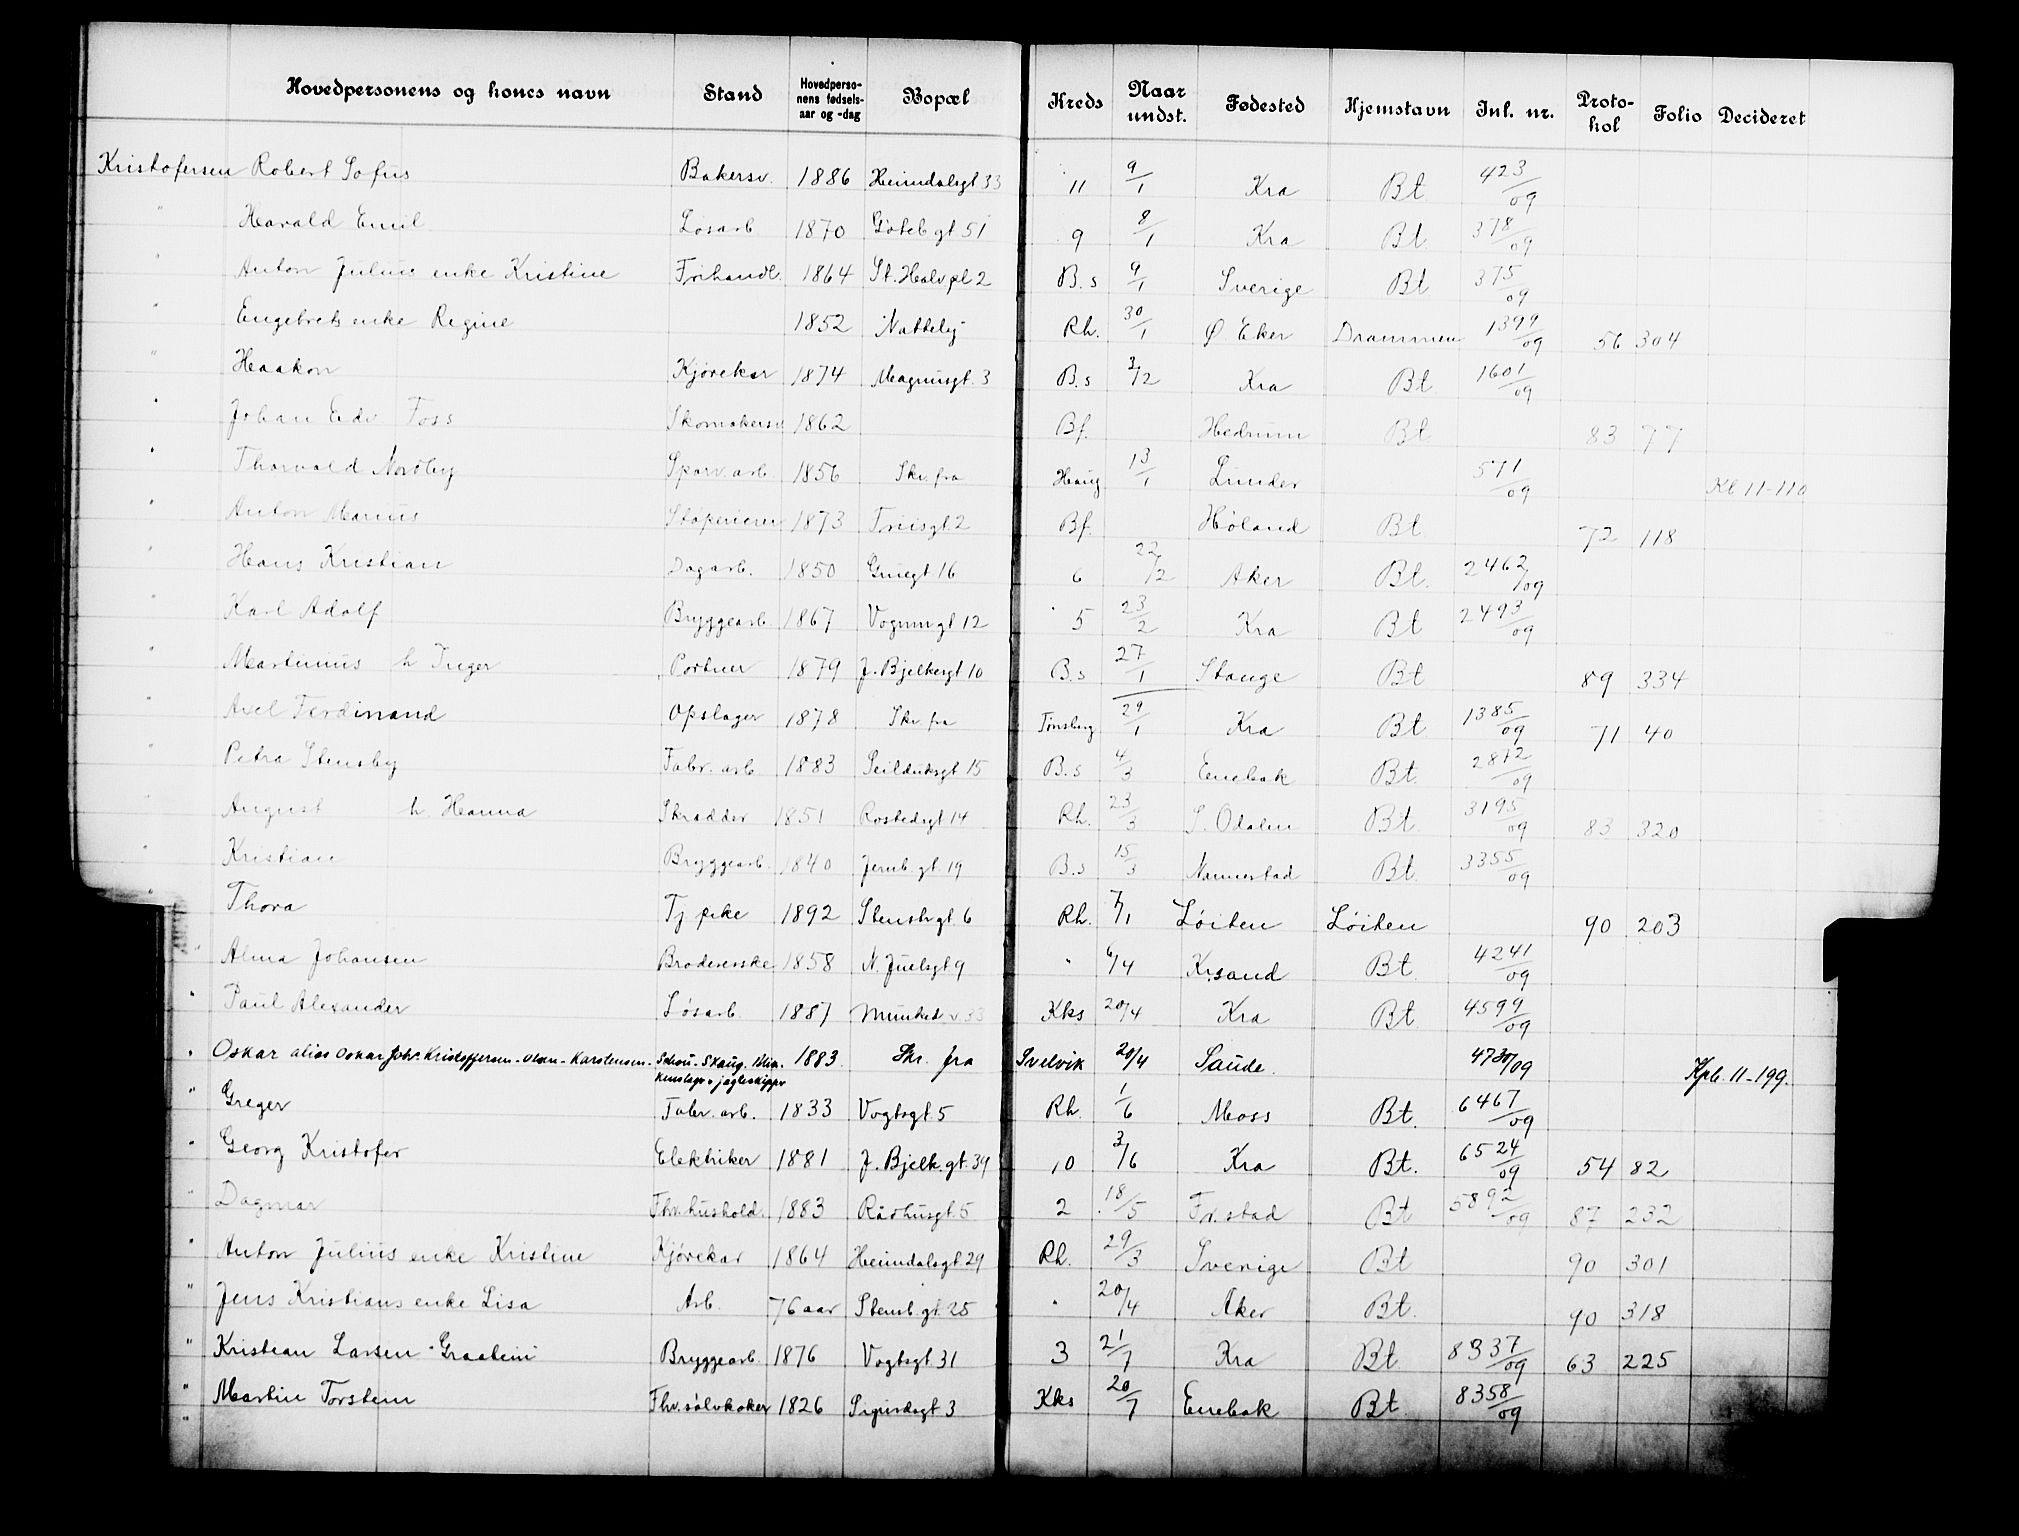 Hovedpersonens og hones navn | Stand | Hovedpersonens fødselsaar og -dag | Bopæl | Kreds | Naar undst. | Fødested | Hjemstavn | Inl. nr. | Protokol | Folio | Decideret
Kristofersen Robert Sofus | Bakersv. | 1886 | Heimdalsgt 33 | 11 | 9/1 | Kra | Bt | 423/09
" Harald Emil | Løsarb. | 1870 | Göteb gt 51 | 9 | 8/1 | Kra | Bt. | 378/09
" Anton Julius enke Kristine | Frihandl. | 1864 | St. Halv pl 2 | B.s | 9/1 | Sverige | Bt | 375/09
" Engebrets enke Regine | 1852 | Nattely | Rh. | 30/1 | Ø Eker | Drammen | 1399/09 | 56 | 304
" Haakon | Kjørekar | 1874 | Magnusgt. 3 | B.s | 3/2 | Kra | Bt | 1601/09
" Johan Edv. Foss | Skomakersv | 1862 | Bf. | Hedrum | Bt | 83 | 77
" Thorvald Nordby | Sporv. arb. | 1856 | Skr. fra | Haug | 13/1 | Lunder | 571/09 | Kl 11-110
" Anton Marius | 1873 | Friisgt 2 | Bf. | Høland | Bt | 72 | 118
" Hans Kristian | Dagarb. | 1850 | Gruegt 16 | 6 | 22/2 | Aker | Bt. | 2462/09
" Karl Adolf | Bryggearb. | 1867 | Vognmgt 12 | 5 | 23/2 | Kra | Bt | 2493/09
" Martinius h Inger | Portner | 1879 | J. Bjelkesgt 10 | B.s | 27/1 | Stange | Bt | 89 | 334
" Axel Ferdinand | Opslager | 1878 | Skr. fra | Tønsberg | 29/1 | Kra | Bt | 1385/09 | 71 | 40
" Petra Stensby | Fabr. arb. | 1883 | Seilduksgt 15 | B.s | 4/3 | Enebak | Bt. | 2872/09
" August h. Hanna | Skradder | 1851 | Rostedsgt 14 | Rh. | 23/3 | S. Odalen | Bt. | 3195/09 | 83 | 320
" Kristian | Bryggearb. | 1840 | Jernb. gt. 19 | B.s | 15/3 | Nannestad | Bt. | 3355/09
" Thora | Tj pike | 1892 | Stensb. gt. 6 | Rh. | 7/1 | Løiten | Løiten | 90 | 203
" Alma Johansen | Brodererske | 1858 | N. Juelsgt 9 | " | 6/4 | Krsand | Bt. | 4241/09
" Paul Alexander | Løsarb. | 1887 | Munked v. 33 | Kks | 20/4 | Kra | Bt | 4599/09
" Oskar alias Oskar Joh. Kristoffersen - Olsen - Karstensen - Schou - Skaug. | jagteskippr | 1883 | Skr. fra | Svelvik | 20/4 | Saude. | 4730/09 | Kpb. 11-199.
" Greger | Fabr. arb. | 1833 | Vogtsgt. 5 | Rh. | 1/6 | Moss | Bt. | 6467/09
" Georg Kristofer | Elektriker | 1881 | J. Bjelk. gt. 39 | 10 | 3/6 | Kra | Bt. | 6524/09 | 54 | 82
" Dagmar | Fhv. hushold. | 1883 | Rådhusgt. 5 | 2 | 18/5 | Fr. stad | Bt | 5892/09 | 87 | 232
" Anton Julius enke Kristine | Kjørekar | 1864 | Heimdalsgt 29 | Rh. | 29/3 | Sverige | Bt | 90 | 301
" Jens Kristians enke Lisa | Arb. | 76 aar | Stensb. gt. 25 | " | 20/4 | Aker | Bt. | 90 | 318
" Kristian Larsen "Graabein" | Bryggearb. | 1876 | Vogtsgt 31 | 3 | 21/7 | Kra | Bt | 8337/09 | 63 | 225
" Martin Torstein | Fhv. sølvkoker | 1826 | Sigurdsgt 3 | Kks | 20/7 | Enebak | Bt. | 8358/09
"